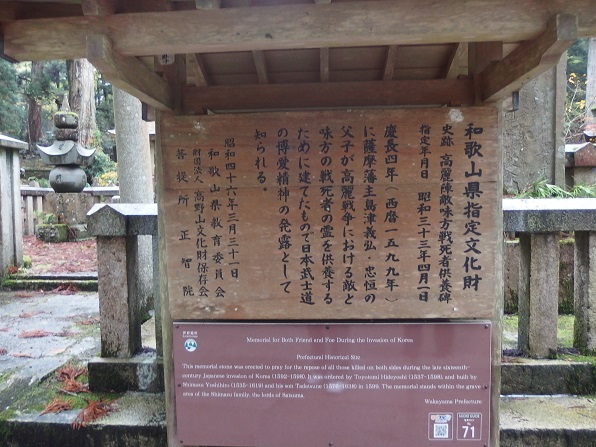 和歌山県指定文化財
史跡 高麗陣敵味方戦死者供養碑
指定年月日 昭和三十三年四月一日
慶長四年(西暦一五九九年)
に薩摩藩主島津義弘・忠恒の
父子が高麗戦争における敵と
味方の戦死者の霊を供養する
ために建てたもので日本武士道
の博愛精神の発露として
知られる。
昭和四十六年三月三十一日
和歌山県教育委員会
財団法人高野山文化財保存会
菩提所 正智院
Memorial for Both Friend and Foe During the Invasion of Korea
Prefectural Historical Site
This memorial stone was erected to pray for the repose of all those killed on both sides during the late sixteenth-
century Japanese invasion of Korea (1592-1598). It was ordered by Toyotomi Hideyoshi (1537-1598), and built by
Shimazu Yoshihiro (1535-1619) and his son Tadatsune (1576-1638) in 1599. The memorial stands within the grave
area of the Shimazu family, the lords of Satsuma.
Wakayama Prefecture
71